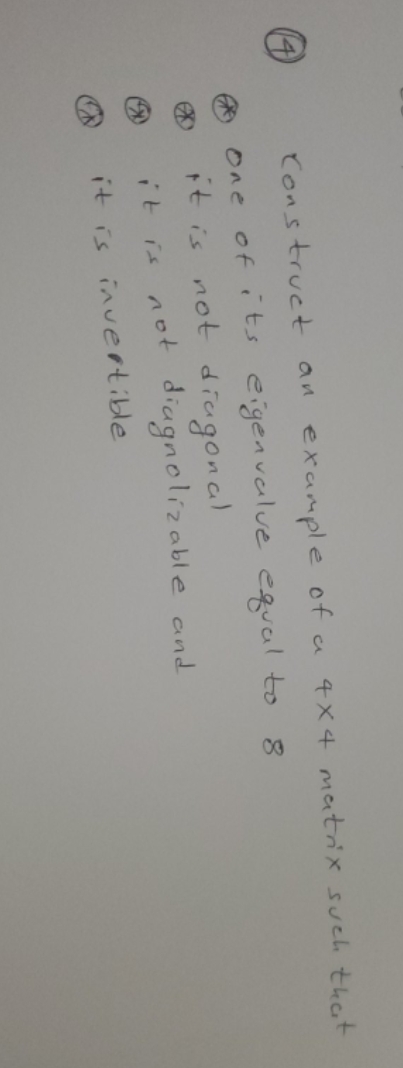 ④ Construct an example of a 4×4 matrix such that
⊛ one of its eigenvalue equal to 8
⊛ it is not diagonal
⊛ it is not diagnolizable and
⊛ it is invertible